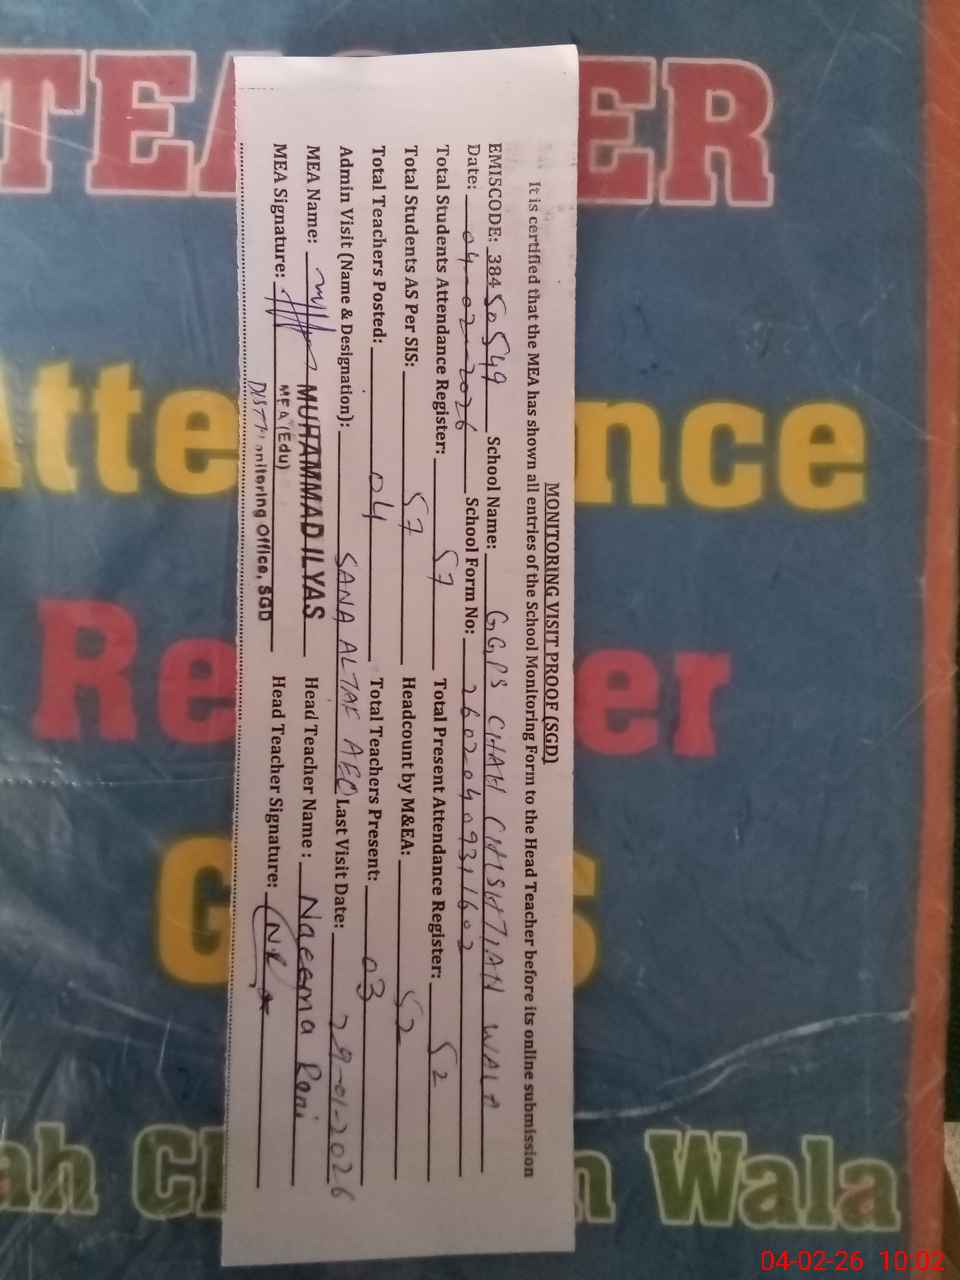 TEA ER
Atte nce
Re er
G s
ah Ch n Wala
MONITORING VISIT PROOF (SGD)
It is certified that the MEA has shown all entries of the School Monitoring Form to the Head Teacher before its online submission
EMISCODE: 38450549 School Name: GGPS CHAH CHISHTIAN WALA
Date: 04-02-2026 School Form No:
Total Students Attendance Register: 57 Total Present Attendance Register: 52
Total Students AS Per SIS: 57 Headcount by M&EA: 52
Total Teachers Posted: 04 Total Teachers Present: 03
Admin Visit (Name & Designation): SANA ALTAF AEO Last Visit Date: 29-01-2026
MEA Name: MUHAMMAD ILYAS Head Teacher Name: Naeema
MEA (Edu)
MEA Signature: Head Teacher Signature:
Distt onitoring Office, SGD
04-02-26 10:02